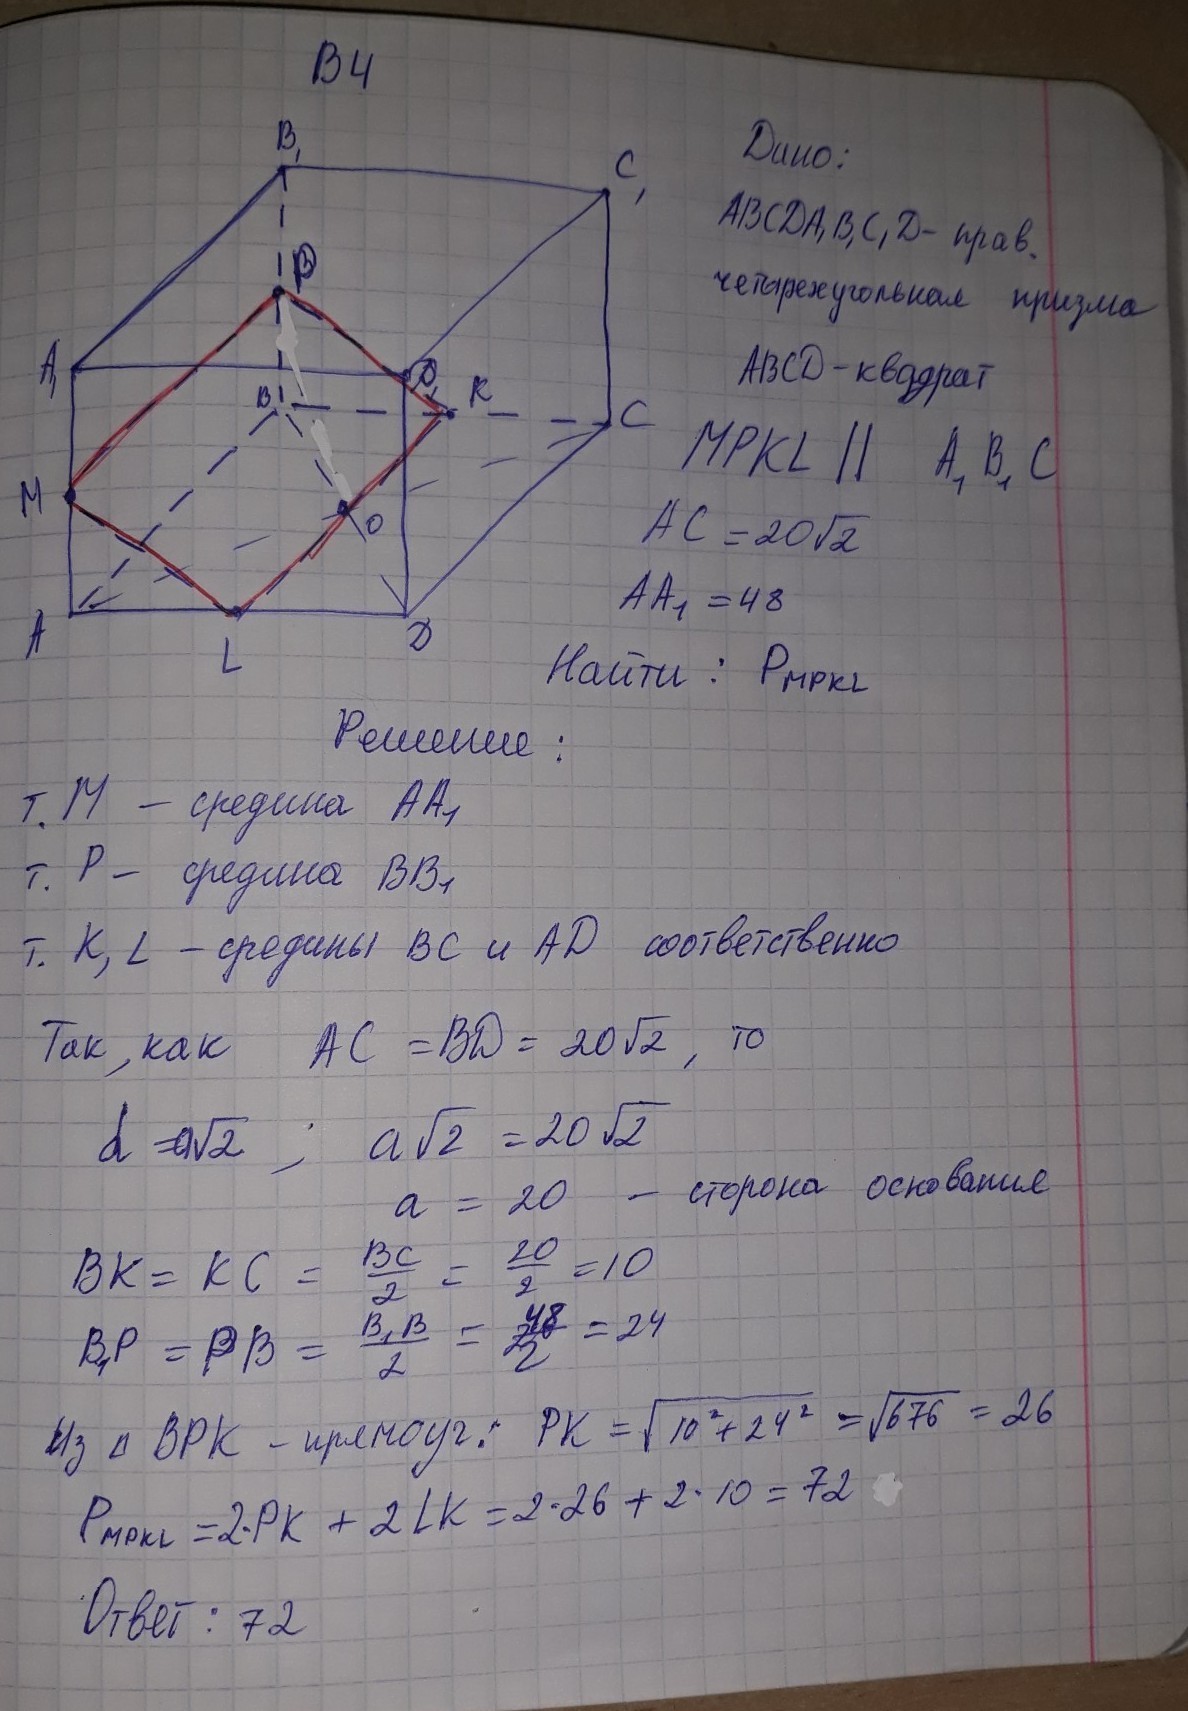 В4
B₁
C₁
P
A₁
D₁
B
K
C
M
O
A
L
D
Дано:
ABCDA₁B₁C₁D - прав.
четырехугольная призма
ABCD - квадрат
MPKL || A₁B₁C
AC = 20√2
AA₁ = 48
Найти: P_MPKL
Решение:
т. M - средина AA₁
т. P - средина BB₁
т. K, L - средины BC и AD соответственно
Так, как AC = BD = 20√2, то
d = a√2 ; a√2 = 20√2
a = 20 - сторона основания
BK = KC = BC/2 = 20/2 = 10
B₁P = PB = B₁B/2 = 48/2 = 24
Из Δ BPK - прямоуг.: PK = √(10² + 24²) = √676 = 26
P_MPKL = 2·PK + 2LK = 2·26 + 2·10 = 72
Ответ: 72